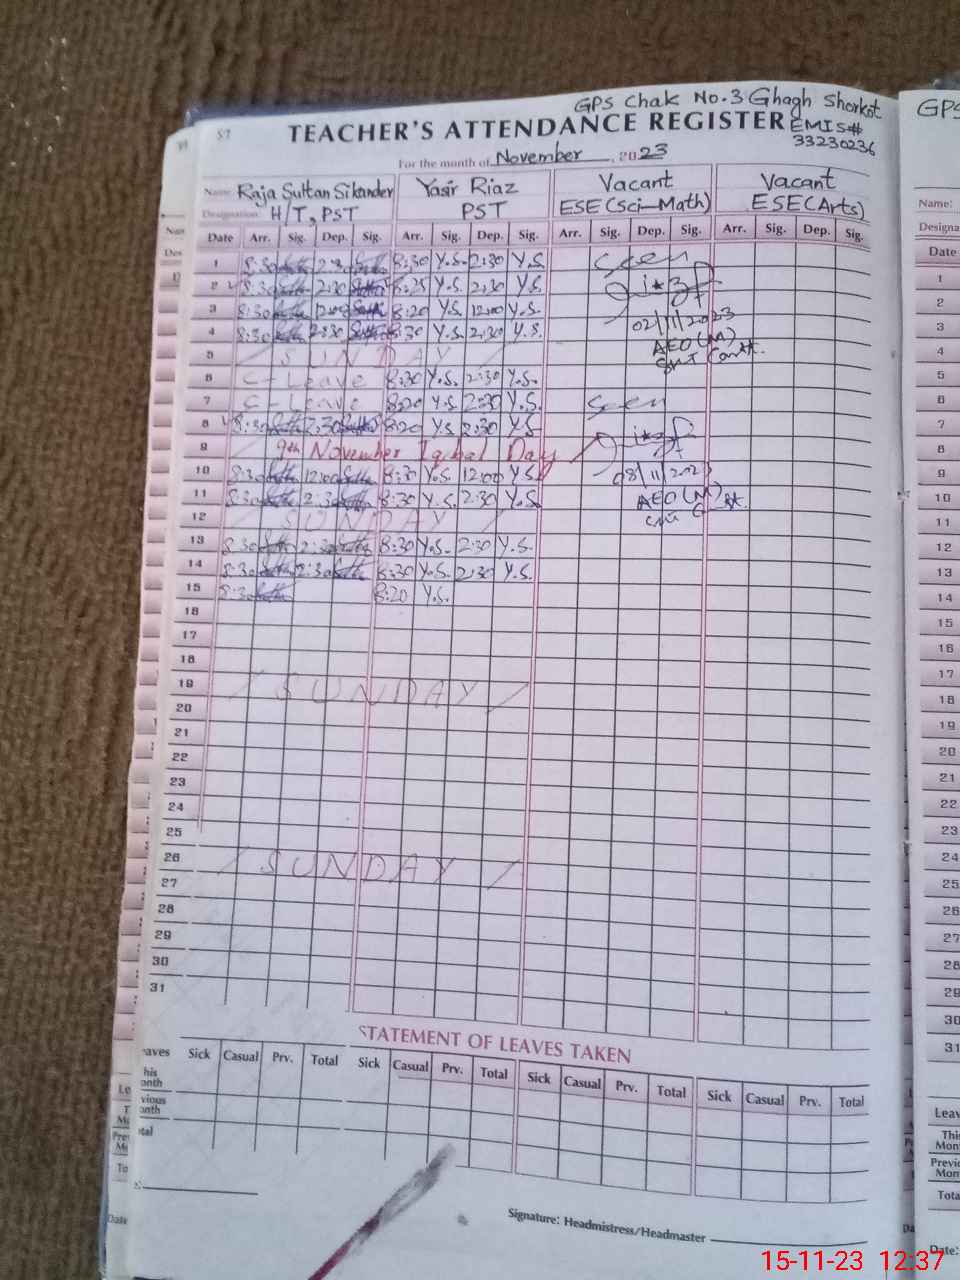 GPS Chak No.3 Ghagh Shorkot
57 TEACHER'S ATTENDANCE REGISTER EMIS#
33230236
For the month of November, 2023
Name: Raja Sultan Sikander Yasir Riaz Vacant Vacant
Designation: H/T, PST PST ESE (Sci-Math) ESE (Arts)
Date Arr. Sig. Dep. Sig. Arr. Sig. Dep. Sig. Arr. Sig. Dep. Sig. Arr. Sig. Dep. Sig.
1 8:30 2:30 8:30 Y.S. 2:30 Y.S. Seen
2 8:30 2:30 8:25 Y.S. 2:30 Y.S.
3 8:30 12:00 8:20 Y.S. 12:00 Y.S. 02/11/2023
4 8:30 2:30 8:30 Y.S. 2:30 Y.S. AEO (M)
5 / SUNDAY /
6 C-Leave 8:30 Y.S. 2:30 Y.S.
7 C-Leave 8:20 Y.S. 2:30 Y.S. Seen
8 8:30 2:30 8:20 Y.S. 2:30 Y.S.
9 9th November Iqbal Day
10 8:30 12:00 8:30 Y.S. 12:00 Y.S. 08/11/2023
11 8:30 2:30 8:30 Y.S. 2:30 Y.S. AEO (M)
12 / SUNDAY /
13 8:30 2:30 8:30 Y.S. 2:30 Y.S.
14 8:30 2:30 8:30 Y.S. 2:30 Y.S.
15 8:30 8:20 Y.S.
16
17
18
19 / SUNDAY /
20
21
22
23
24
25
26 / SUNDAY /
27
28
29
30
31
STATEMENT OF LEAVES TAKEN
eaves Sick Casual Prv. Total Sick Casual Prv. Total Sick Casual Prv. Total Sick Casual Prv. Total
his
onth
vious
onth
tal
Signature: Headmistress/Headmaster
GPS
Name:
Designa
Date
1
2
3
4
5
6
7
8
9
10
11
12
13
14
15
16
17
18
19
20
21
22
23
24
25
26
27
28
29
30
31
Leav
This
Mon
Previo
Mon
Tota
Date:
15-11-23 12:37